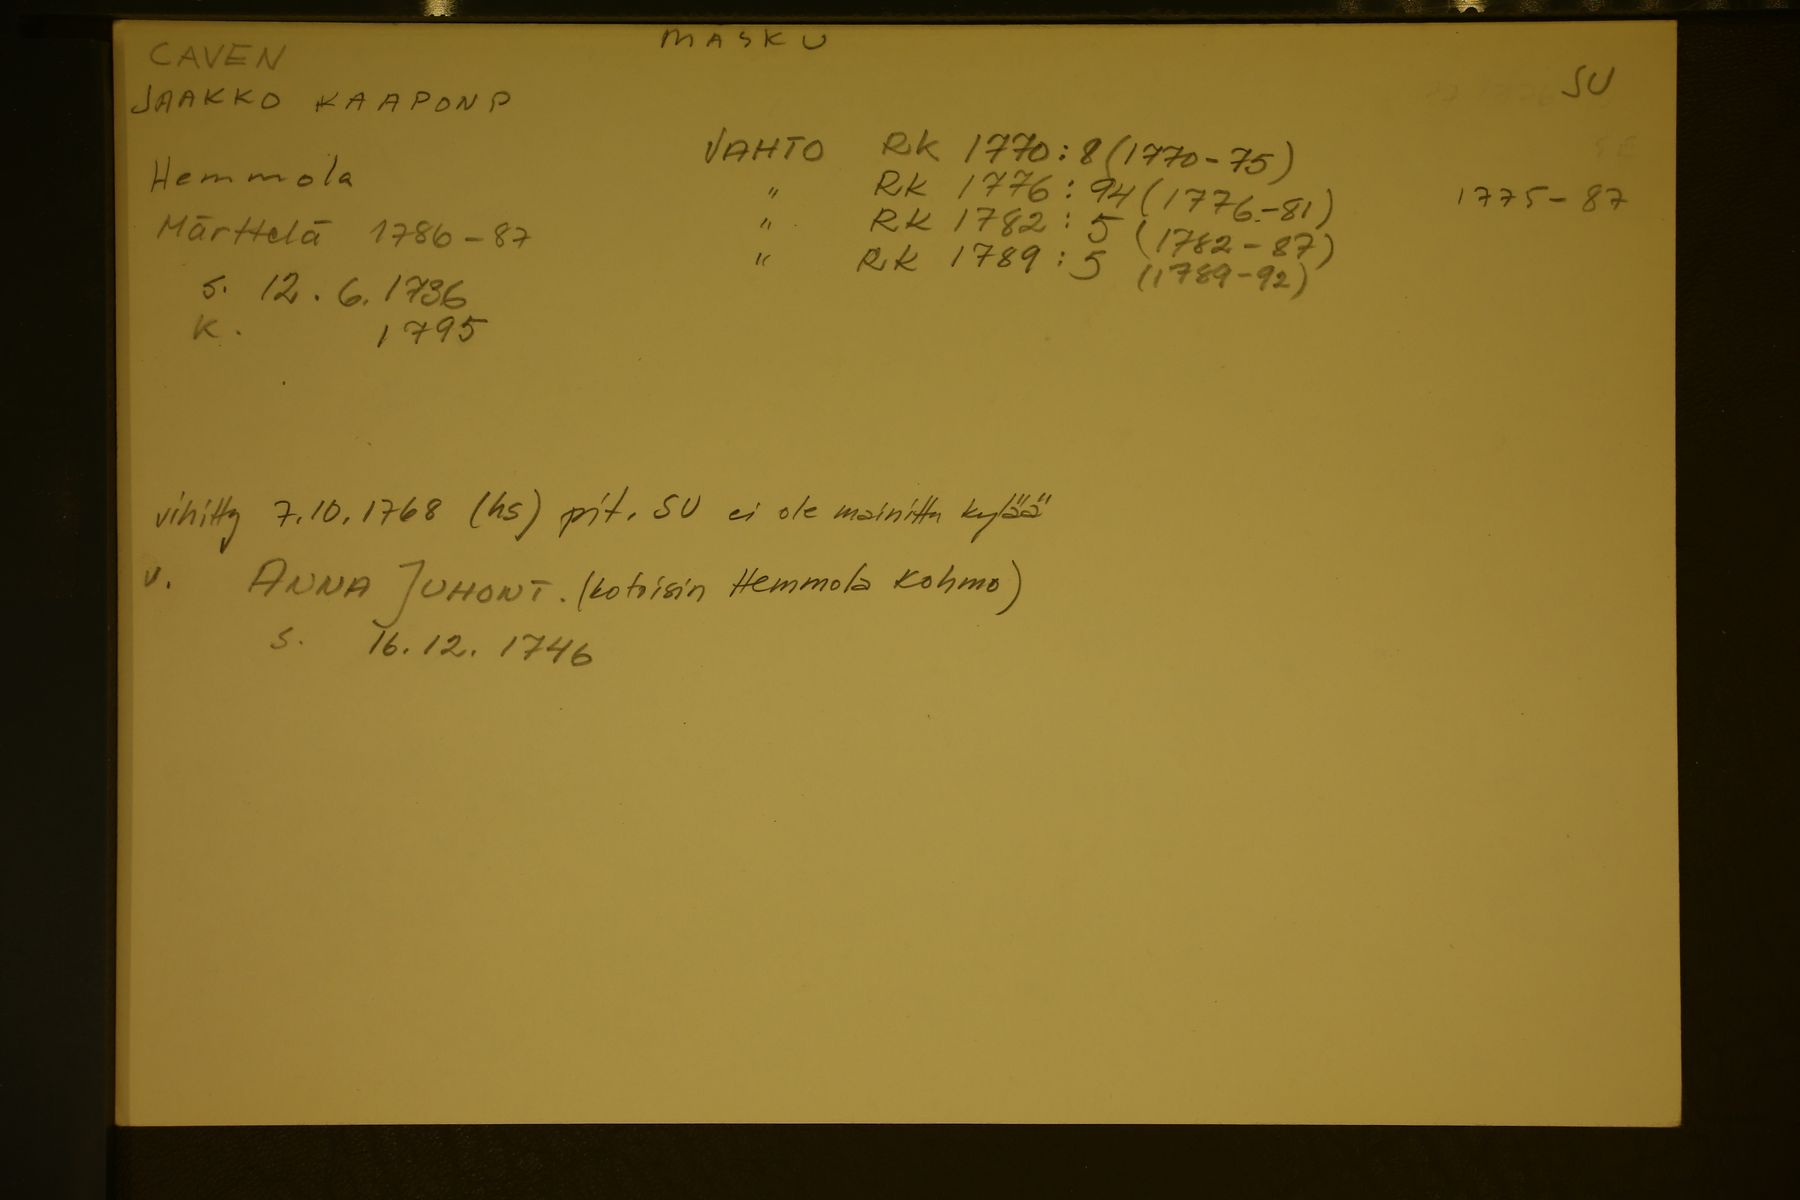 MASKU
CAVEN
SU
JAAKKO KAAPONP
VAHTO RK 1770:8 (1770-75)
Hemmola
" RK 1776:94 (1776-81) 1775-87
Märttelä 1786-87
" RK 1782:5 (1782-87)
" RK 1789:5 (1789-92)
s. 12.6.1736
k. 1795
vihitty 7.10.1768 (hs) pit. SU ei ole mainittu kylää
v. ANNA JUHONT. (kotoisin Hemmola Kohmo)
s. 16.12.1746